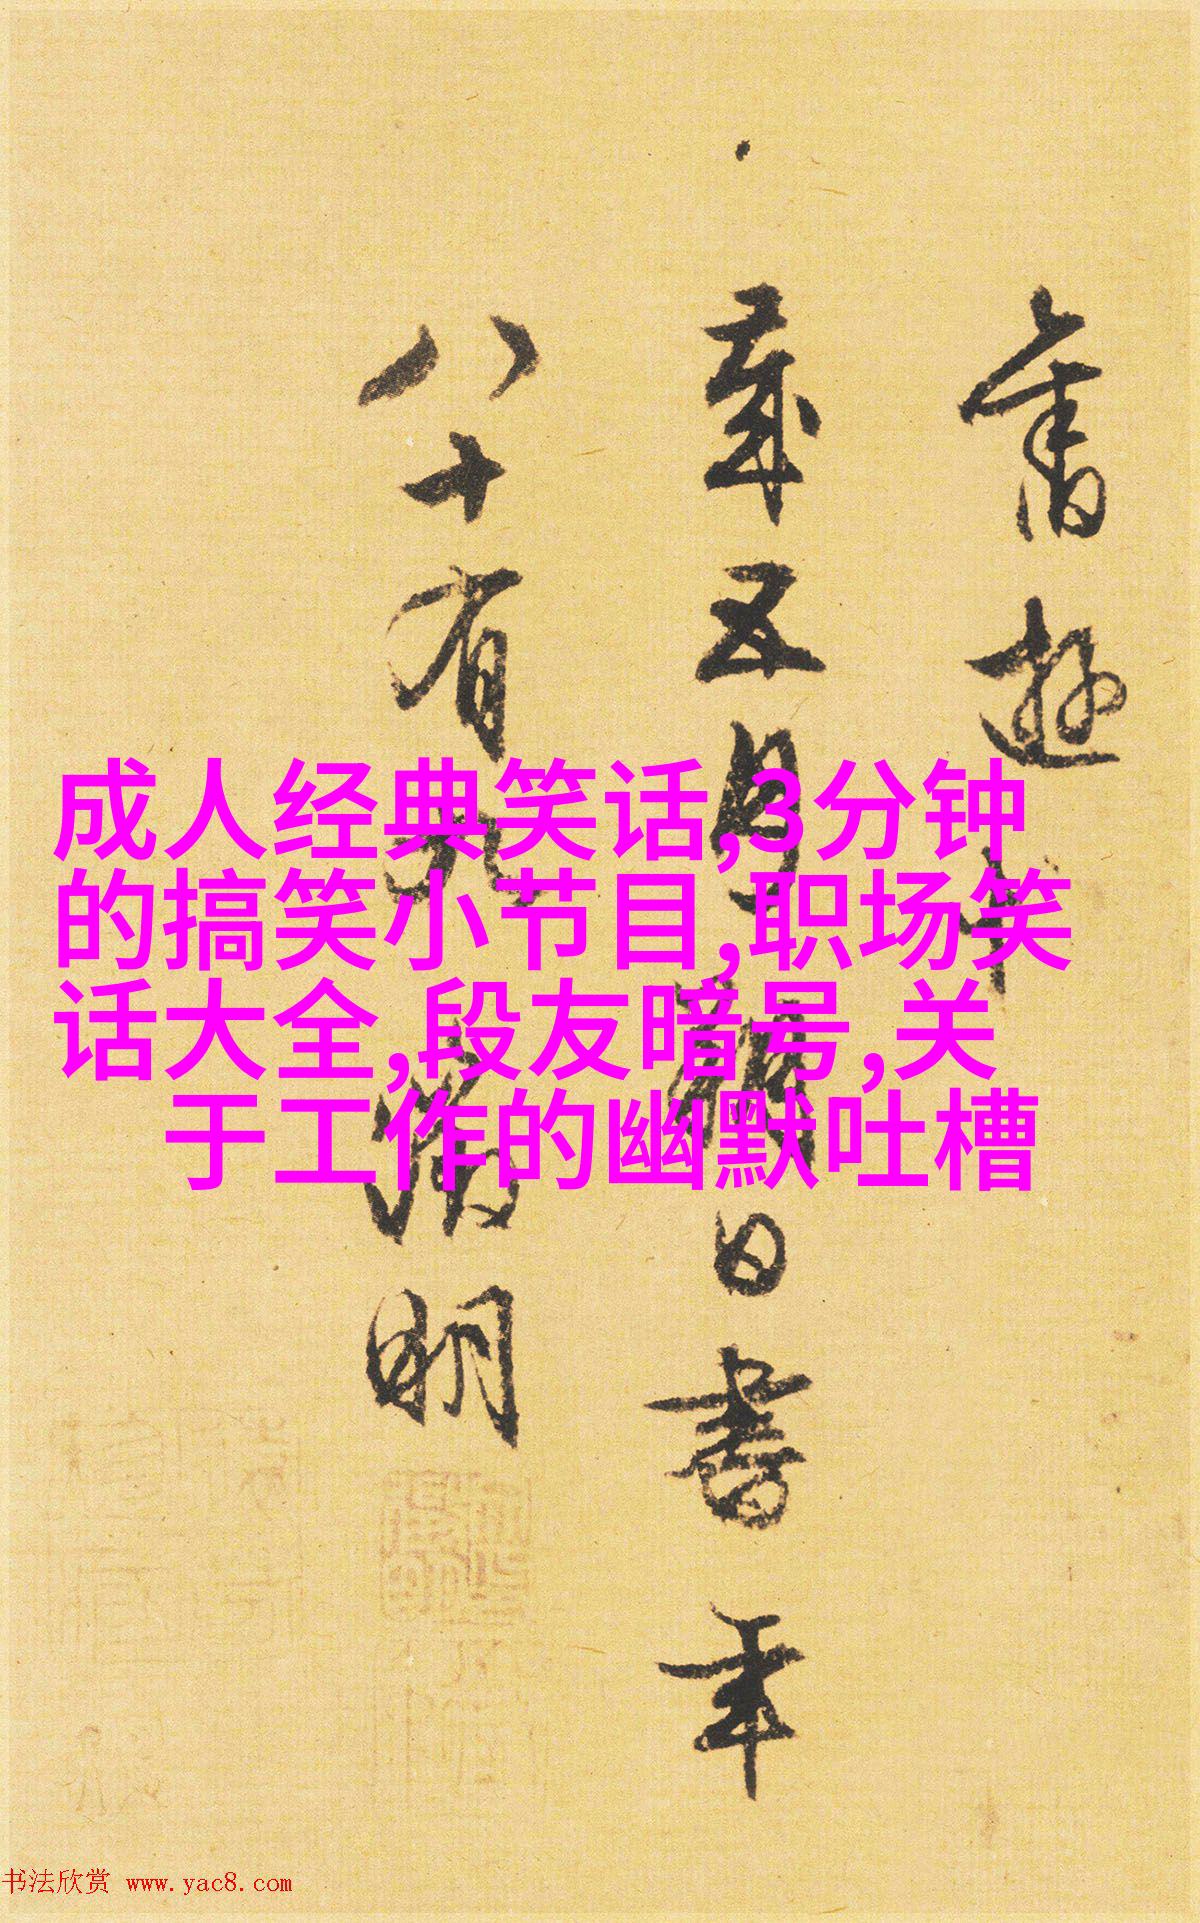 旧游
岁五月朔日书年
八十有九 徵明
成人经典笑话,3分钟
的搞笑小节目,职场笑
话大全,段友暗号,关
于工作的幽默吐槽
书法欣赏 www.yac8.com